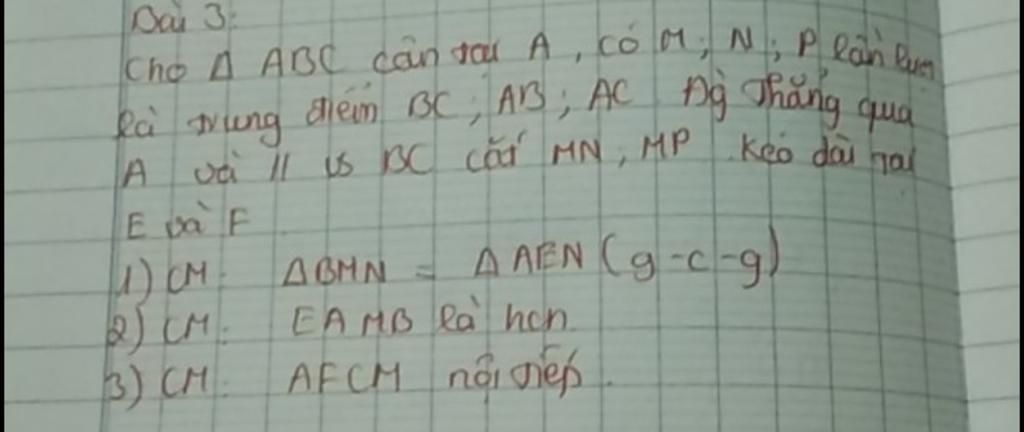 Bài 3:
Cho Δ ABC cân tại A, có M; N; P lần lượt
là trung điểm BC; AB; AC Đg thẳng qua
A và // vs BC cắt MN, MP kéo dài tại
E và F
1) CM: ΔBMN = ΔAEN (g-c-g)
2) CM: EAMB là hcn
3) CM: AFCM nội tiếp.